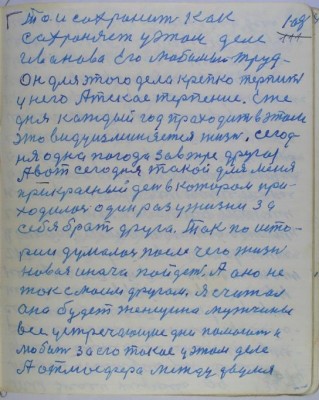 То и сохранит как
сохраняет у этом деле
Иванова Его любимый труд.
Он для этого дела крепко терпит
у него Атское терпение. Еже
дня каждый год проходит в этом
это виду изминяется жизн. сегод-
ня одна погода завтре другая
А вот сегодня такой для меня
прекрасный ден в котором при-
ходилос один раз у жизни за
себя брат друга. Так по исто-
рии думалос после чего жизн
новая иначе пойдет. А оно не
так с моем другом. Я считал
она будет женщина мужчины
все устречающие дни помогать и
любить за его такое у этом деле
А атмосфера между двумя